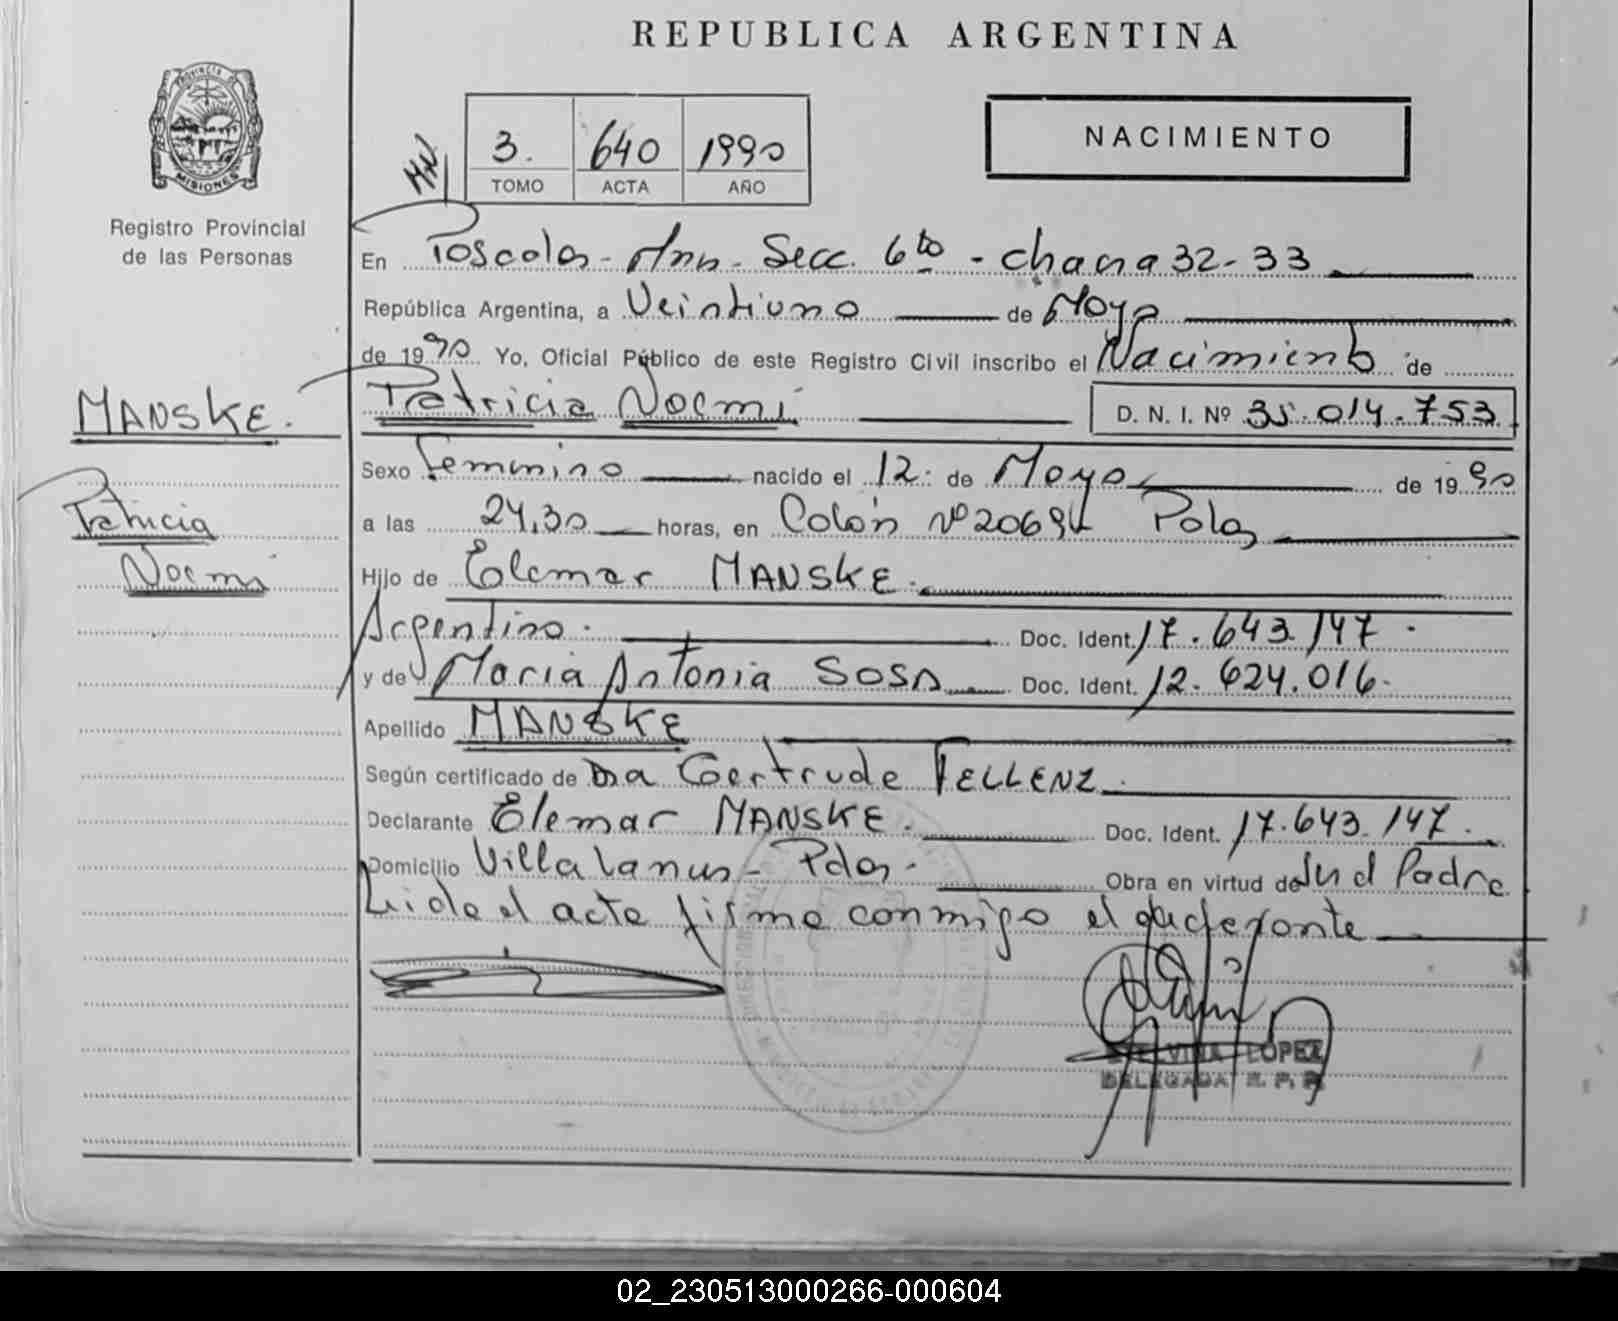 REPUBLICA ARGENTINA
PROVINCIA DE
MISIONES
Registro Provincial
de las Personas
3. 640 1990
TOMO ACTA AÑO
NACIMIENTO
En Posadas - Mnes - Secc. 6to - chacra 32-33
República Argentina, a Veintiuno de Mayo
de 1990 Yo, Oficial Público de este Registro Civil inscribo el Nacimiento de
MANSKE.
Patricia Noemi D. N. I. Nº 35.014.753
Sexo Femenino nacido el 12 de Mayo de 1990
Patricia
a las 24,30 horas, en Colón Nº 2069 Pdas
Noemi
Hijo de Elemar MANSKE.
Argentino. Doc. Ident. 17.643.147.
y de Maria Antonia SOSA Doc. Ident. 12.624.016.
Apellido MANSKE
Según certificado de Dra Gertrude FELLENZ.
Declarante Elemar MANSKE. Doc. Ident. 17.643.147.
Domicilio Villa Lanus - Pdas. Obra en virtud de Padre
Leida el acta firma conmigo el
LOPEZ
DELEGADA R. P. P.
02_230513000266-000604